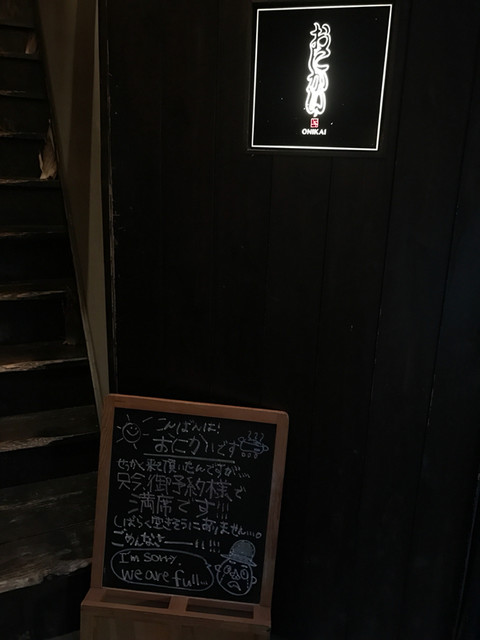 おにかい
ONIKAI
こんばんは!
おにかいです
せっかく来て頂いたんですが、、、
只今御予約様で
満席です!!!
しばらく空きそうにありません…。
ごめんなさいーー!!!!
I'm sorry.
we are full...